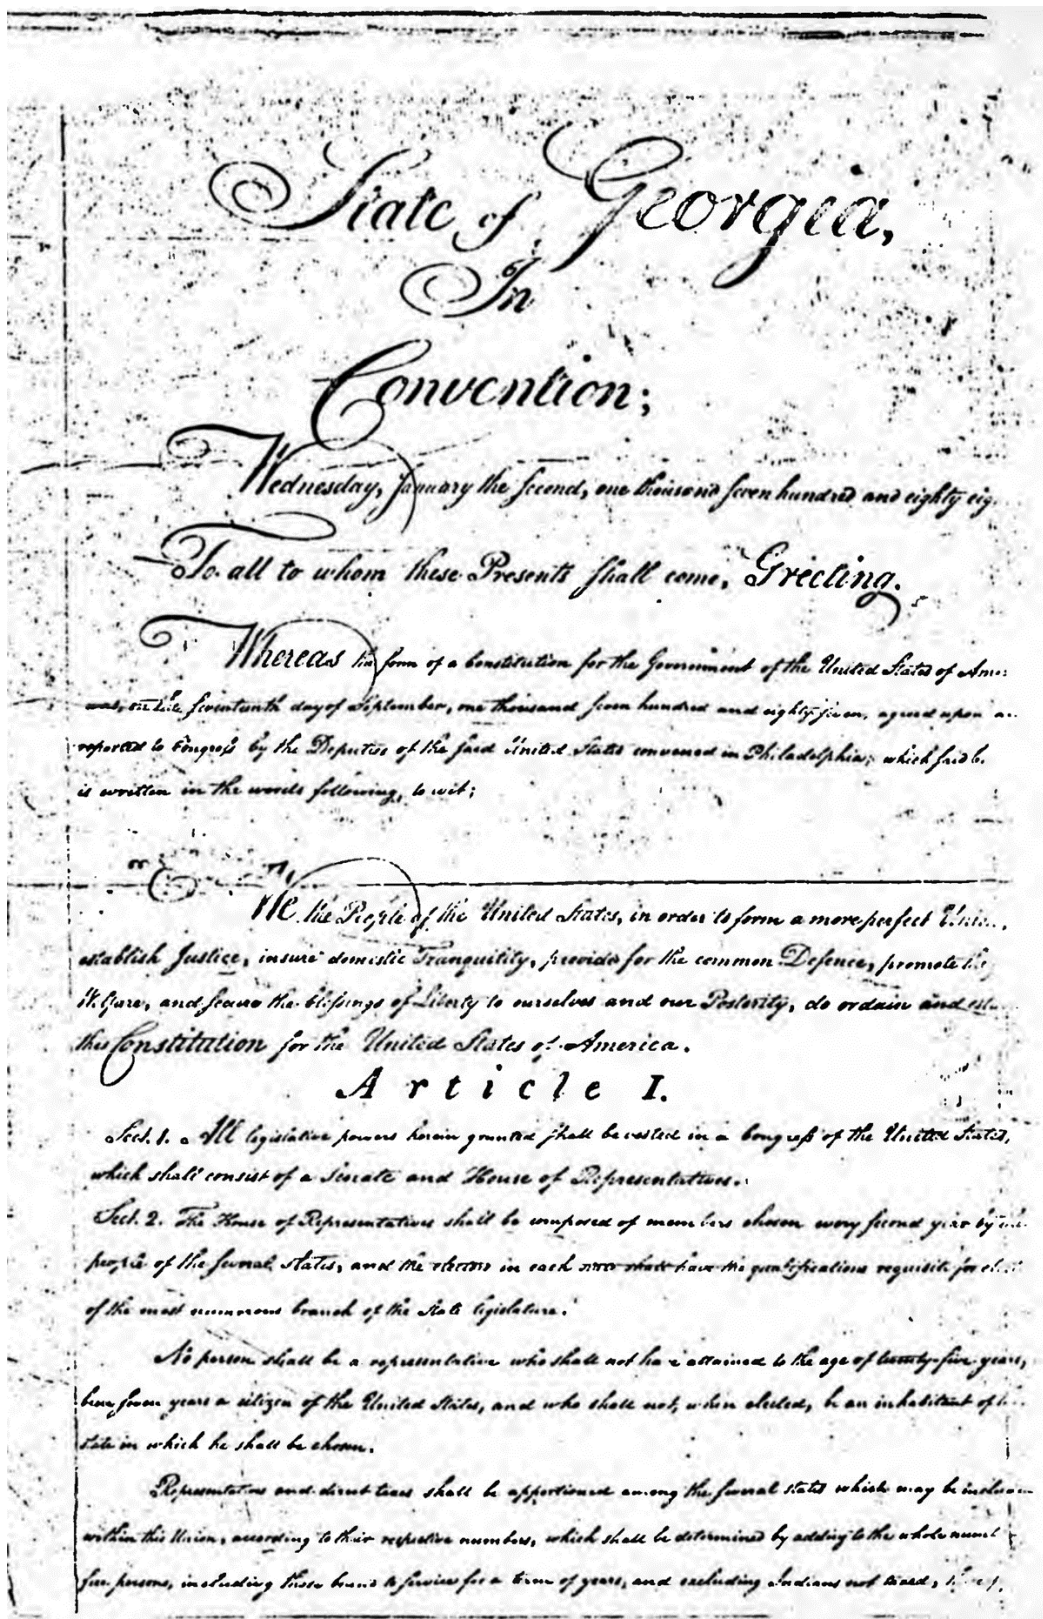 State of Georgia,
In
Convention;
Wednesday, January the second, one thousand seven hundred and eighty eig
To all to whom these Presents shall come, Greeting.
Whereas the form of a Constitution for the Government of the United States of Amer
was, on the seventeenth day of September, one thousand seven hundred and eighty seven, agreed upon an
reported to Congress by the Deputies of the said United States convened in Philadelphia; which said
is written in the words following, to wit;
We the People of the United States, in order to form a more perfect Union,
establish Justice, insure domestic Tranquility, provide for the common Defence, promote the
Welfare, and secure the blessings of Liberty to ourselves and our Posterity, do ordain and
this Constitution for the United States of America.
Article I.
Sect. 1. All legislative powers herein granted shall be vested in a Congress of the United States,
which shall consist of a Senate and House of Representatives.
Sect. 2. The House of Representatives shall be composed of members chosen every second year by the
people of the several states, and the electors in each state shall have the qualifications requisite for
of the most numerous branch of the state legislature.
No person shall be a representative who shall not have attained to the age of twenty-five years,
been seven years a citizen of the United States, and who shall not, when elected, be an inhabitant of
state in which he shall be chosen.
Representatives and direct taxes shall be apportioned among the several states which may be
within this Union, according to their respective numbers, which shall be determined by adding to the whole
free persons, including those bound to service for a term of years, and excluding Indians not taxed,